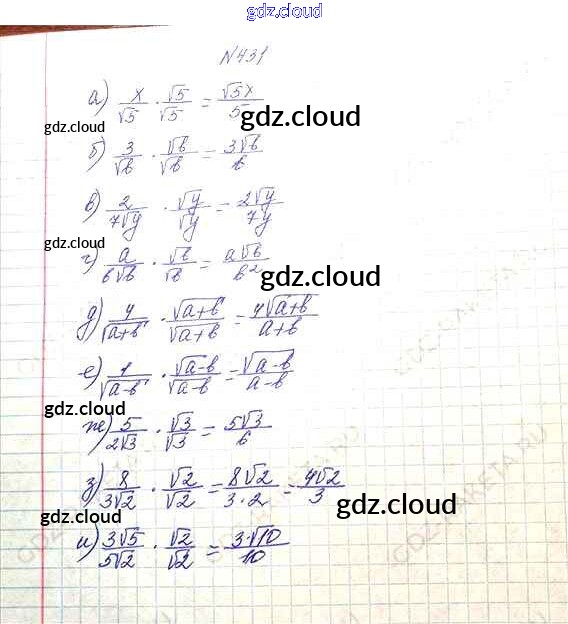 gdz.cloud
N431
а) x/√5 · √5/√5 = √5x/5
gdz.cloud
gdz.cloud
б) 3/√b · √b/√b = 3√b/b
в) 2/7√y · √y/√y = 2√y/7y
г) a/b√b · √b/√b = a√b/b²
gdz.cloud
д) 4/√a+b · √a+b/√a+b = 4√a+b/a+b
е) 1/√a-b · √a-b/√a-b = √a-b/a-b
gdz.cloud
gdz.cloud
ж) 5/2√3 · √3/√3 = 5√3/6
з) 8/3√2 · √2/√2 = 8√2/3·2 = 4√2/3
gdz.cloud
gdz.cloud
и) 3√5/5√2 · √2/√2 = 3·√10/10